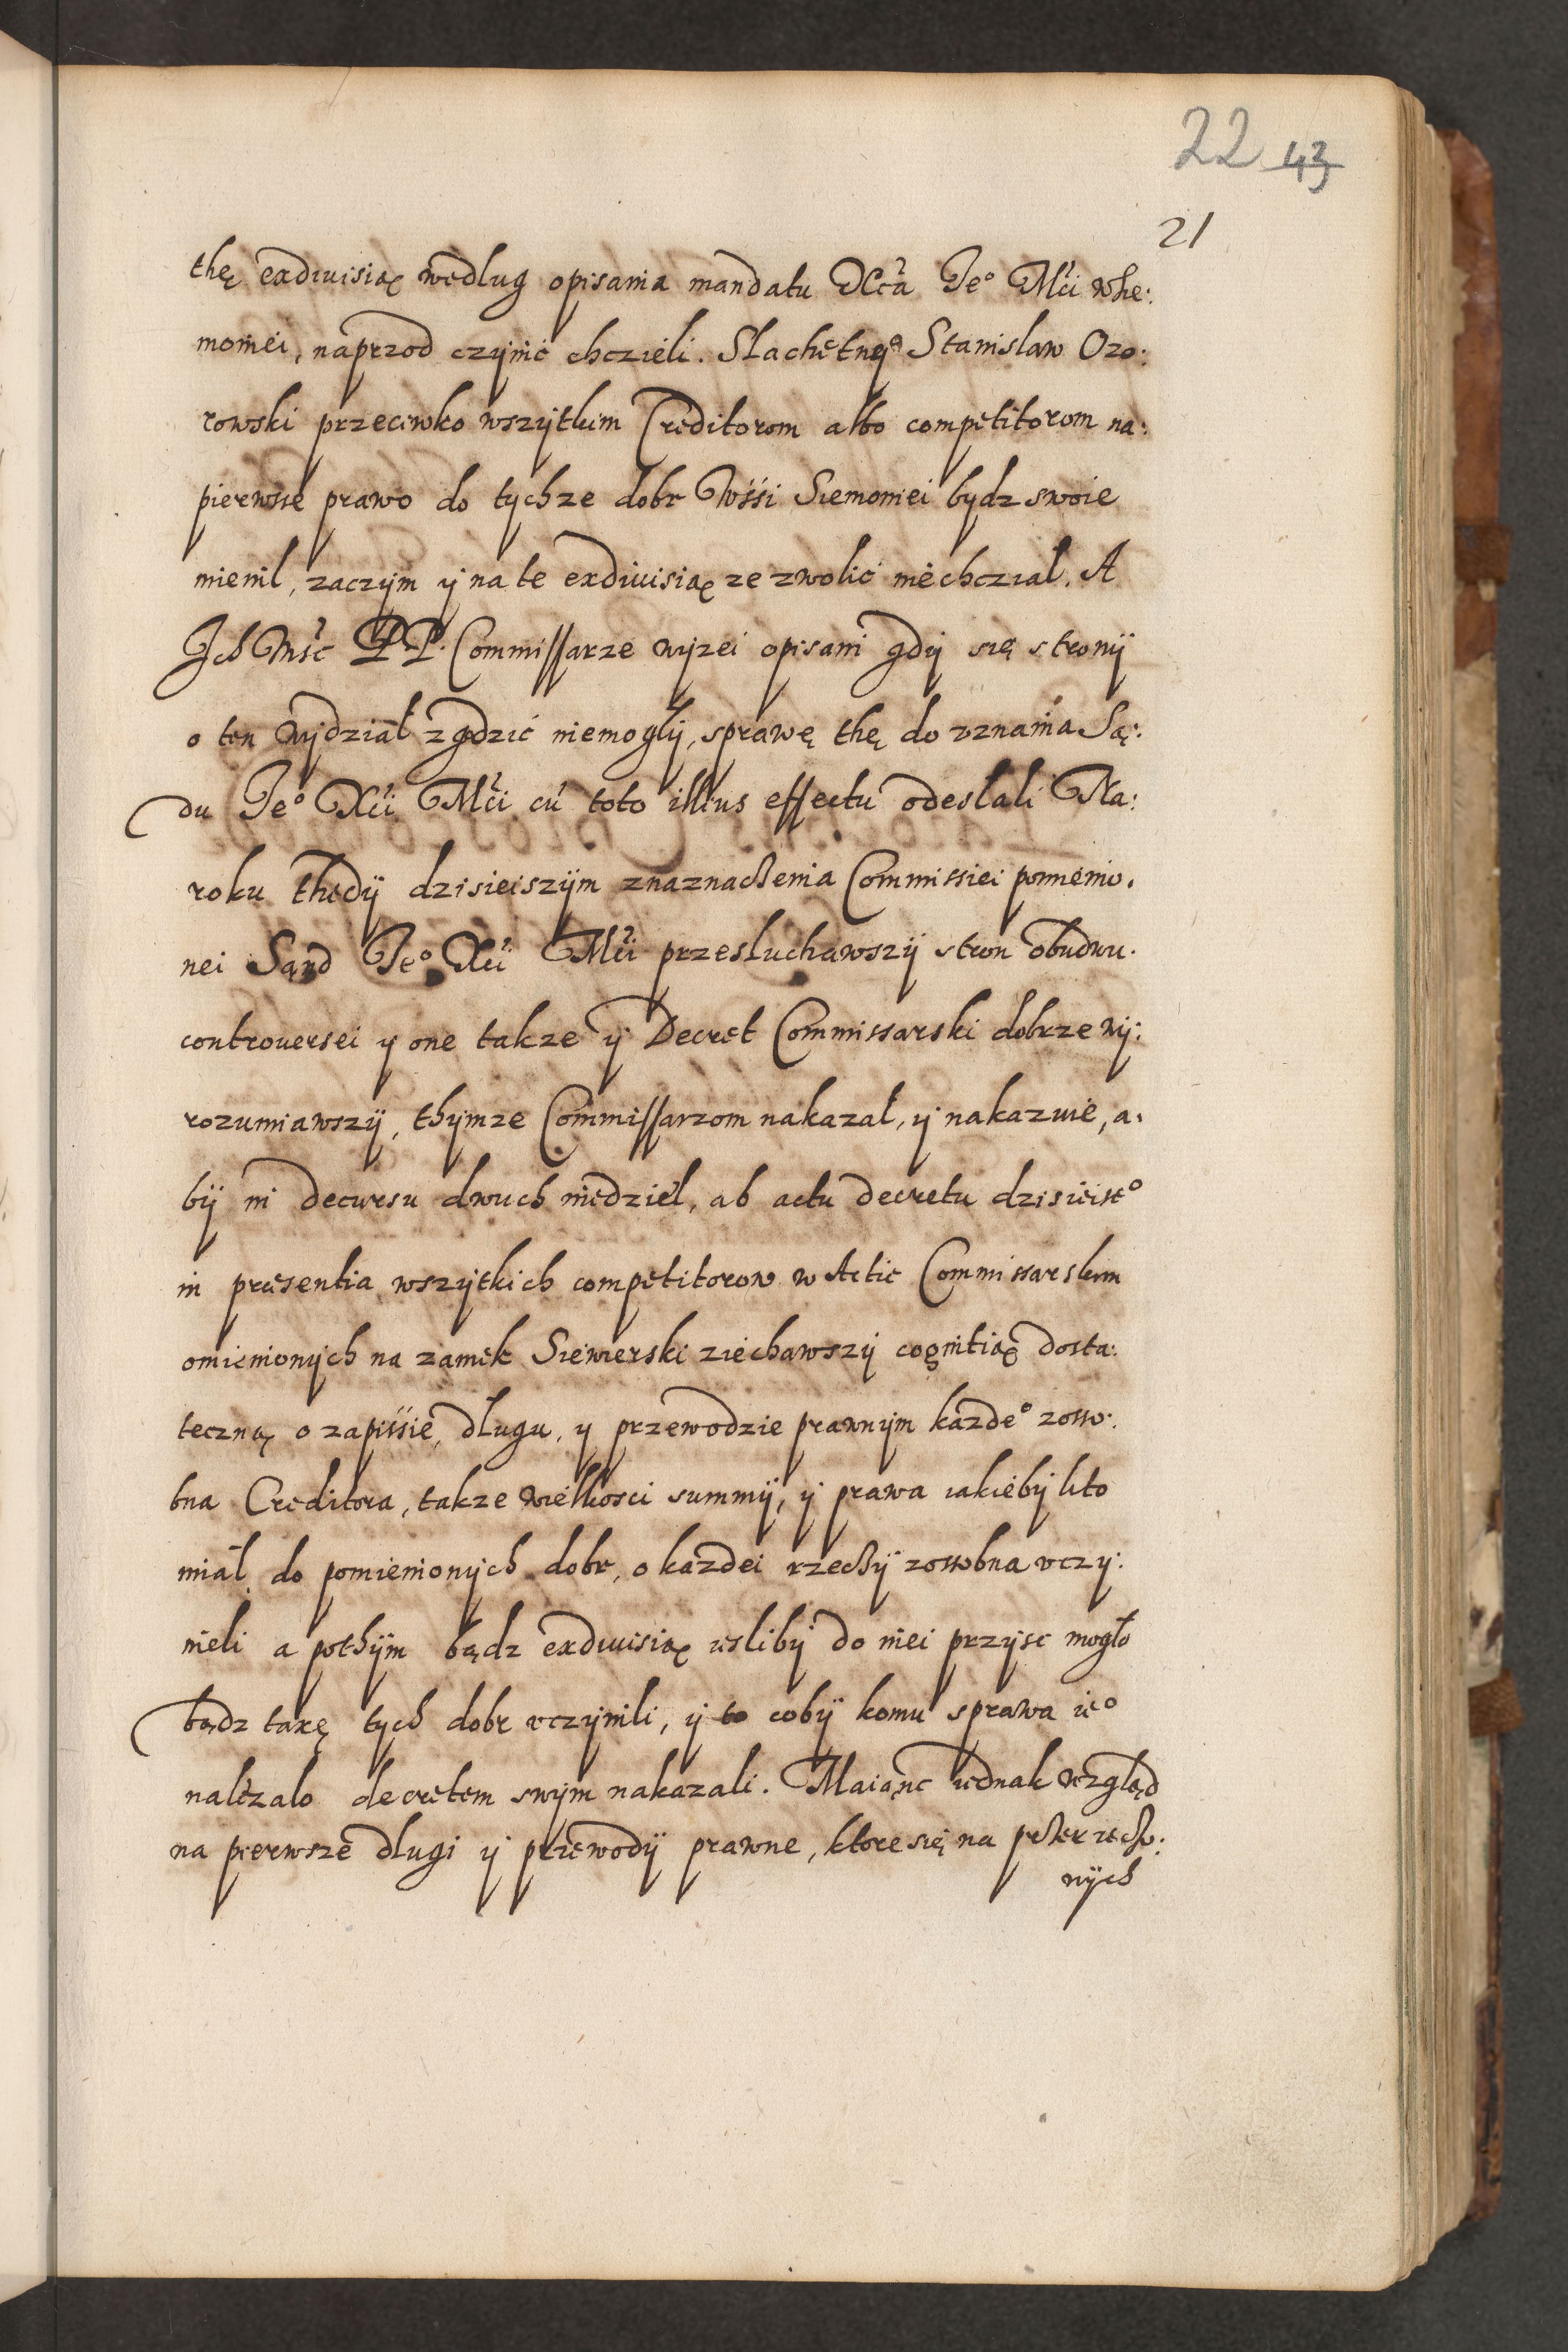 22 43
21
thę exdiuisią według opisania mandatu Xcia Je° Mci wSie:
moniei, naprzod czynić chczieli. Slachetny Stanislaw Ozo:
rowski przeciwko wszytkim Creditorom albo competitorom na:
pierwsze prawo do tychze dobr Wśśi Siemoniei bydz swoie
mienil, zaczym y na te exdiuisią zezwolić niechczial. A
Ich Mśc PP. Commissarze wyzei opisani gdy się strony
o ten wydział zgdzić niemogly, sprawę thę do vznania Są:
du Je° Xci Mci cu toto illius effectu odeslali Na:
roku thedy dzisieiszym znaznaczenia Commissiei pomienio.
nei Sąnd Je° Xci Mci przesluchawszy stron obudwu.
controuersei y one takze y Decret Commissarski dobrze wy:
rozumiawszy, thymze Commissarzom nakazał, y nakazuie, a.
by in decursu dwuch niedziel, ab actu decretu dzisieisz°
in presentia wszytkich competitorow w Actie Commissarskim
omienionych na zamek Siewierski ziechawszy cognitią dosta:
teczną o zapissie, dlugu, y przewodzie prawnym kazde° zosso:
bna Creditora, takze wielkosci summy, y prawa iakieby kto
miał do pomienionych dobr, o kazdei rzeczy zossobna vczy:
nieli a pothym bądz exdiuisią iesliby do niei przysc mogło
bądz taxę tych dobr vczynili, y to coby komu sprawa ie°
nalezalo decretem swym nakazali. Maianc iednak wzgląd
na pierwsze dlugi y przewody prawne, ktore się na
nych